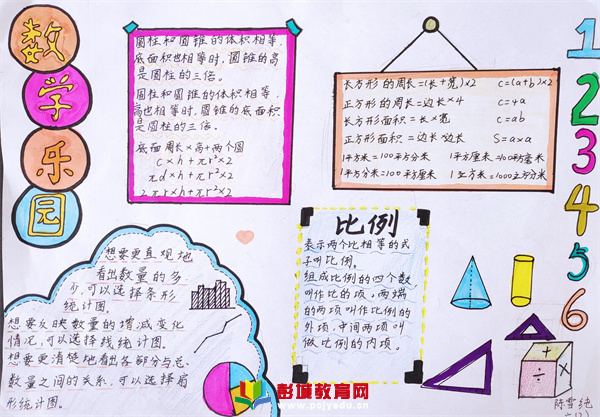 数
学
乐
园
圆柱和圆锥的体积相等,
底面积也相等时,圆锥的高
是圆柱的三倍。
圆柱和圆锥的体积相等,
高也相等时,圆锥的底面积
是圆柱的三倍。
底面周长×高+两个圆
c×h+πr²×2
πd×h+πr²×2
2πr×h+πr²×2
长方形的周长=(长+宽)×2 c=(a+b)×2
正方形的周长=边长×4 c=4a
长方形面积=长×宽 c=ab
正方形面积=边长·边长 S=a×a
1平方米=100平方分米 1平方厘米=100平方毫米
1平方分米=100平方厘米 1立方米=1000立方分米
1
2
3
4
5
6
想要更直观地
看出数量的多
少,可以选择条形
统计图。
想要反映数量的增减变化
情况,可以选择线统计图。
想要更清楚地看出各部分与总
数量之间的关系,可以选择扇
形统计图。
比例
表示两个比相等的式
子叫比例。
组成比例的四个数,
叫作比的项。两端
的两项叫作比例的
外项,中间两项叫
做比例的内项。
+
×
÷
彭城教育网
www.pcjyedu.cn